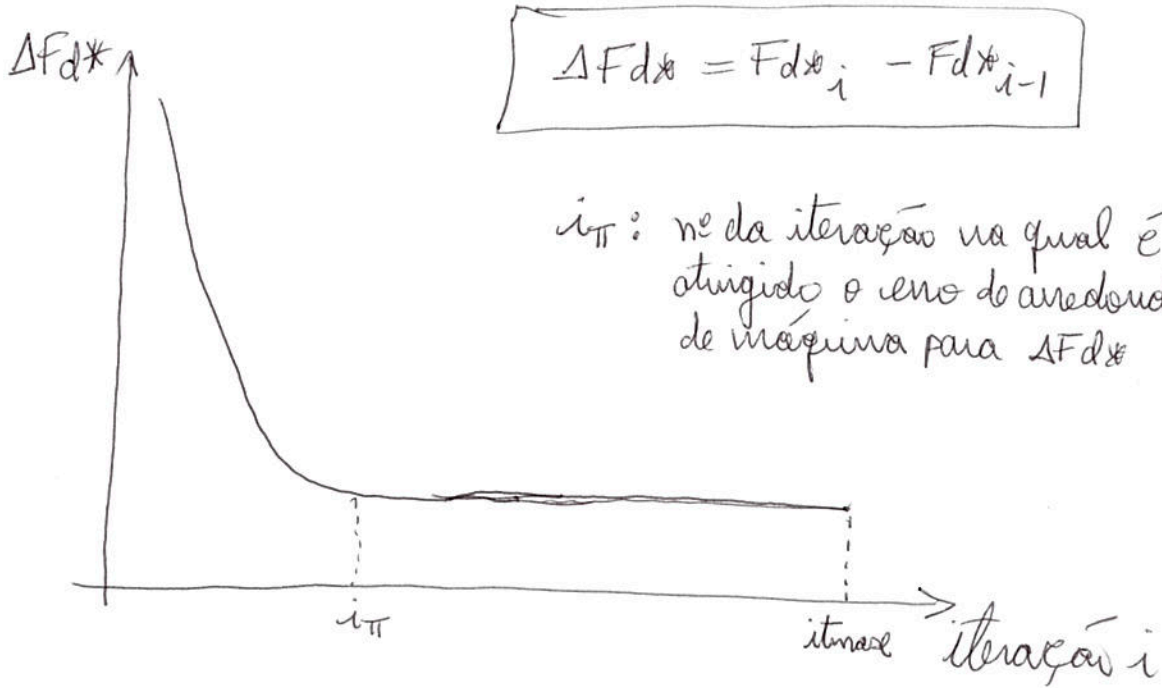 ΔFd*
ΔFd* = Fd*ᵢ - Fd*ᵢ₋₁
i_π : nº da iteração na qual é
atingido o erro de arredono
de máquina para ΔFd*
i_π
itmax
iteração i